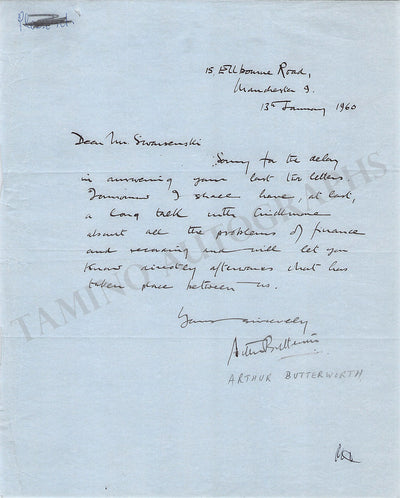 15 Ellbourne Road,
Manchester 9.
13th January 1960
Dear Mr. Swarsenski
Sorry for the delay
in answering your last two letters.
Tomorrow I shall have, at last,
a long talk with
about all the problems of finance
and recording and will let you
know directly afterwards what has
taken place between us.
Yours sincerely
Arthur Butterworth
ARTHUR BUTTERWORTH
TAMINO AUTOGRAPHS